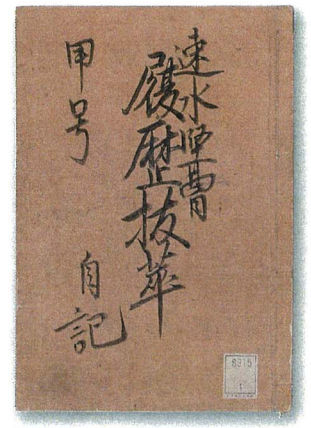 速水堅曹
履歴抜萃
甲号
自記
6915
1